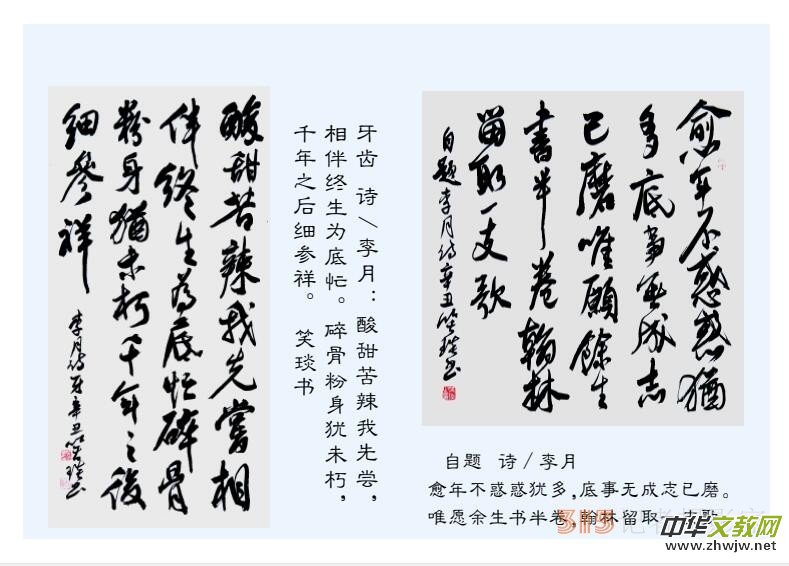 酸甜苦辣我先嘗相
伴終生為底忙碎骨
粉身猶未朽千年之後
細參祥
李月诗牙辛丑笑琰书
牙齿 诗／李月：酸甜苦辣我先尝，
相伴终生为底忙。碎骨粉身犹未朽，
千年之后细参祥。 笑琰书
愈年不惑惑猶
多底事無成志
已磨唯願餘生
書半卷翰林
留取一支歌
自题李月诗辛丑笑琰书
自题 诗／李月
愈年不惑惑犹多,底事无成志已磨。
唯愿余生书半卷,翰林留取一支歌
315记者摄影家
中华文教网
www.zhwjw.net